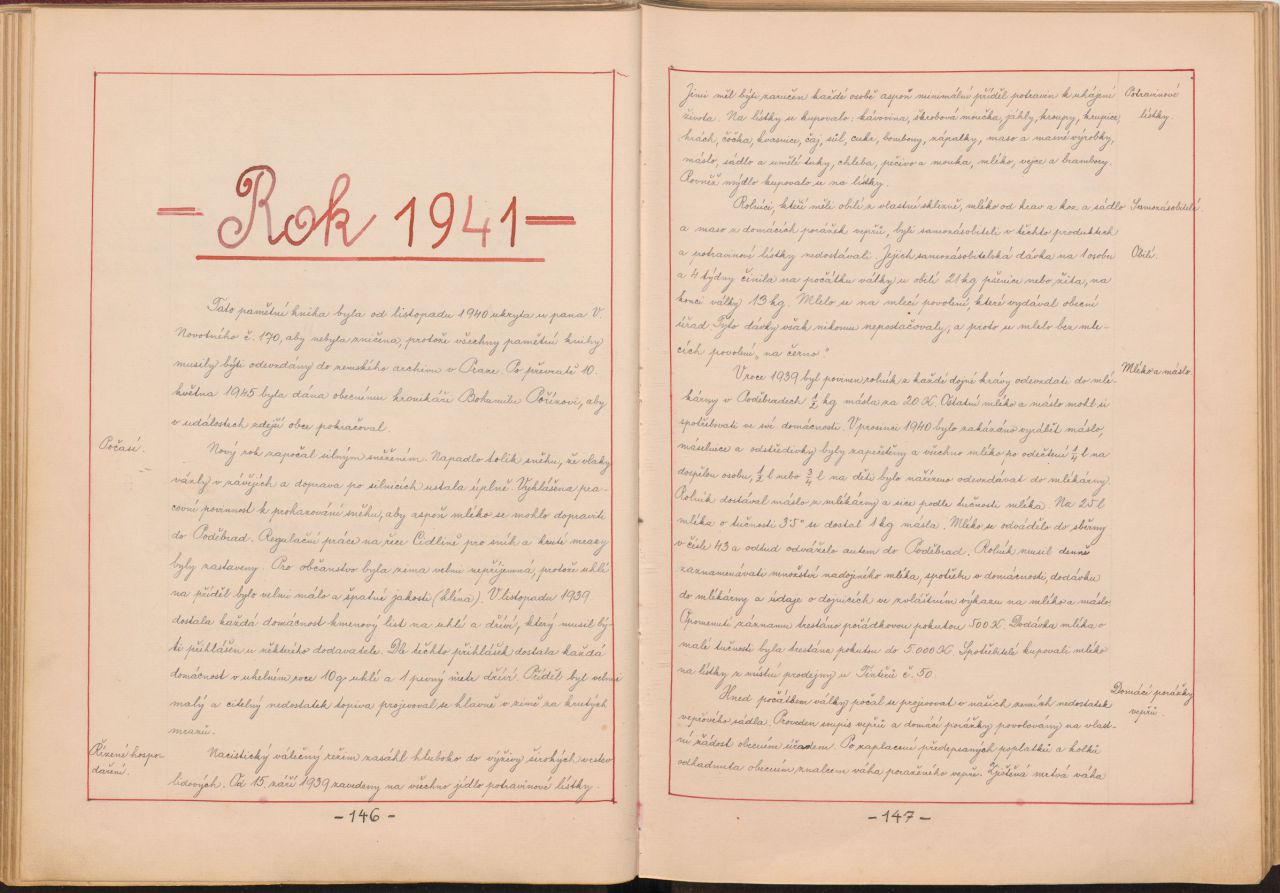 — Rok 1941 —
Tato pamětní kniha byla od listopadu 1940 ukryta u pana V.
Novotného č. 170, aby nebyla zničena, protože všechny pamětní knihy
musily býti odevzdány do zemského archivu v Praze. Po převratě 10.
května 1945 byla dána obecnímu kronikáři Bohumilu Pořízovi, aby
v událostech zdejší obce pokračoval.
Počasí.
Nový rok započal silným sněžením. Napadlo tolik sněhu, že vlaky
vázly v závějích a doprava po silnicích ustala úplně. Vyhlášena pra-
covní povinnost k prohazování sněhu, aby aspoň mléko se mohlo dopraviti
do Poděbrad. Regulační práce na řece Cidlině pro sníh a kruté mrazy
byly zastaveny. Pro občanstvo byla zima velmi nepříjemná, protože uhlí
na příděl bylo velmi málo a špatné jakosti (hlína). V listopadu 1939
dostala každá domácnost kmenový list na uhlí a dříví, který musil bý-
ti přihlášen u některého dodavatele. Dle těchto přihlášek dostala každá
domácnost v uhelném roce 10 q uhlí a 1 pevný metr dříví. Příděl byl velmi
malý a citelný nedostatek topiva projevoval se hlavně v zimě za krutých
mrazů.
Řízené hospo-
daření.
Nacistický válečný režim zasáhl hluboko do výživy širokých vrstev
lidových. Od 15. září 1939 zavedeny na všechno jídlo potravinové lístky.
- 146 -
Jimi měl býti zaručen každé osobě aspoň minimální příděl potravin k uhájení
života. Na lístky se kupovalo: kávovina, škrobová moučka, jáhly, kroupy, krupice,
hrách, čočka, kvasnice, čaj, sůl, cukr, bombony, zápalky, maso a masné výrobky,
máslo, sádlo a umělé tuky, chleba, pečivo a mouka, mléko, vejce a brambory.
Rovněž mýdlo kupovalo se na lístky.
Potravinové
lístky.
Rolníci, kteří měli obilí z vlastní sklizně, mléko od krav a koz a sádlo
a maso z domácích porážek vepřů, byli samozásobiteli v těchto produktech
a potravinové lístky nedostávali. Jejich samozásobitelská dávka na 1 osobu
a 4 týdny činila na počátku války u obilí 21 kg pšenice nebo žita, na
konci války 13 kg. Mlelo se na mlecí povolení, které vydával obecní
úřad. Tyto dávky však nikomu nepostačovaly, a proto se mlelo bez mle-
cích povolení „na černo“
Samozásobitelé.
Obilí.
V roce 1939 byl povinen rolník z každé dojné krávy odevzdati do mlé-
kárny v Poděbradech 1/2 kg másla za 20 K. Ostatní mléko a máslo mohl si
spotřebovati ve své domácnosti. V prosinci 1940 bylo zakázáno vyrábět máslo,
máselnice a odstředivky byly zapečetěny a všechno mléko po odečtení 1/4 l na
dospělou osobu, 1/2 l nebo 3/4 l na děti bylo nařízeno odevzdávat do mlékárny.
Rolník dostával máslo z mlékárny a sice podle tučnosti mléka. Na 25 l
mléka o tučnosti 3·5% se dostal 1 kg másla. Mléko se odvádělo do sběrny
v čísle 43 a odtud odváželo autem do Poděbrad. Rolník musil denně
zaznamenávati množství nadojeného mléka, spotřebu v domácnosti, dodávku
do mlékárny a údaje o dojnicích ve zvláštním výkazu na mléko a máslo.
Opomenutí záznamu trestáno pořádkovou pokutou 500 K. Dodávka mléka o
malé tučnosti byla trestána pokutou do 5.000 K. Spotřebitelé kupovali mléko
na lístky z místní prodejny u Tintěrů č. 50.
Mléko a máslo.
Hned počátkem války počal se projevovat v našich zemích nedostatek
vepřového sádla. Proveden soupis vepřů a domácí porážky povolovány na vlast-
ní žádost obecním úřadem. Po zaplacení předepsaných poplatků a kolků
odhadnuta obecním znalcem váha poraženého vepře. Zjištěná mrtvá váha
Domácí porážky
vepřů.
- 147 -